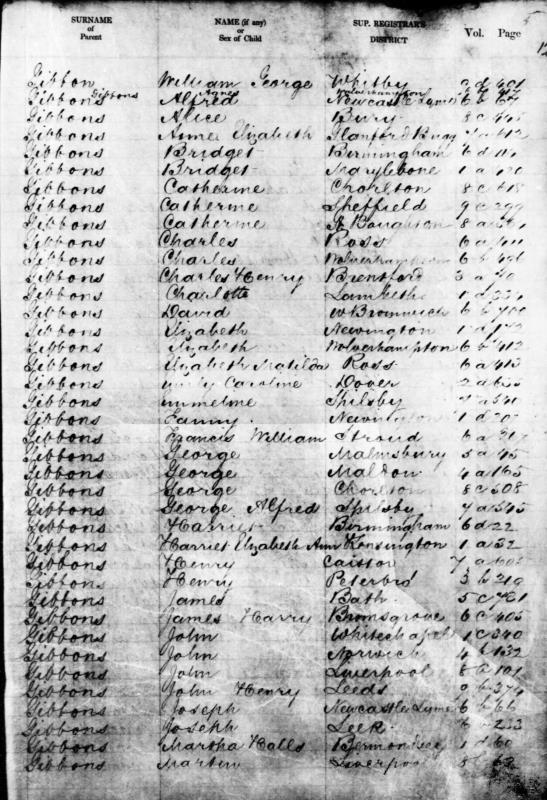 SURNAME of Parent NAME (if any) or Sex of Child SUP. REGISTRAR'S DISTRICT Vol. Page
Gibbon William George Whitby 9 d 401
Gibbons Agnes Wolverhampton
Gibbons Alfred Newcastle Lyme 6 b 67
Gibbons Alice Bury 8 c 445
Gibbons Annie Elizabeth 7 a 412
Gibbons Bridget Birmingham 6 d
Gibbons Bridget Marylebone 1 a
Gibbons Catherine Chorlton 8 c 618
Gibbons Catherine Sheffield 9 c 299
Gibbons Catherine Gt Boughton 8 a
Gibbons Charles Ross 6 a
Gibbons Charles Wolverhampton 6 b
Gibbons Charles Henry Brentford 3 a
Gibbons Charlotte Lambeth 1 d 334
Gibbons David W Bromwich 6 b 700
Gibbons Elizabeth Newington 1 d 172
Gibbons Elizabeth Wolverhampton 6 b 412
Gibbons Elizabeth Matilda Ross 6 a 413
Gibbons Caroline Dover 2 d 635
Gibbons Spilsby 7 a 541
Gibbons Fanny Newington 1 d
Gibbons Francis William Stroud 6 a 317
Gibbons George Malmsbury 5 a 45
Gibbons George Maldon 4 a 165
Gibbons George Chorlton 8 c 508
Gibbons George Alfred Spilsby 7 a 545
Gibbons Harriet Birmingham 6 d 22
Gibbons Harriet Elizabeth Ann Kensington 1 a 32
Gibbons Henry Caistor 7 a 605
Gibbons Henry Peterbro' 3 b 219
Gibbons James Bath 5 c 721
Gibbons James Harry Bromsgrove 6 c 405
Gibbons John Whitechapel 1 c 340
Gibbons John Norwich 4 b 132
Gibbons John Liverpool 8 b 101
Gibbons John Henry Leeds 9 b 374
Gibbons Joseph Newcastle Lyme 6 b 66
Gibbons Joseph Leek 6 b 233
Gibbons Martha Halls Bermondsey 1 d 60
Gibbons Martin Liverpool 8 b 63